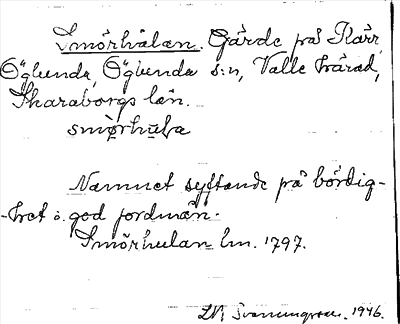 Smörhålan. Gärde på Kärr,
Öglunda, Öglunda s:n, Valle härad,
Skaraborgs län.
smörhula
Namnet syftande på bördig-
-het o. god jordmån.
Smörhulan lm. 1797.
1946.